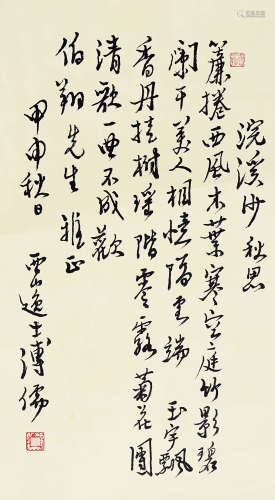 浣溪沙 秋思
簾捲西風木葉寒空庭竹影碧
闌干美人相憶隔雲端 玉宇飄
香丹桂樹瑤階零露菊花團
清歌一曲不成歡
伯翔先生 雅正
甲申秋日 西山逸士溥儒